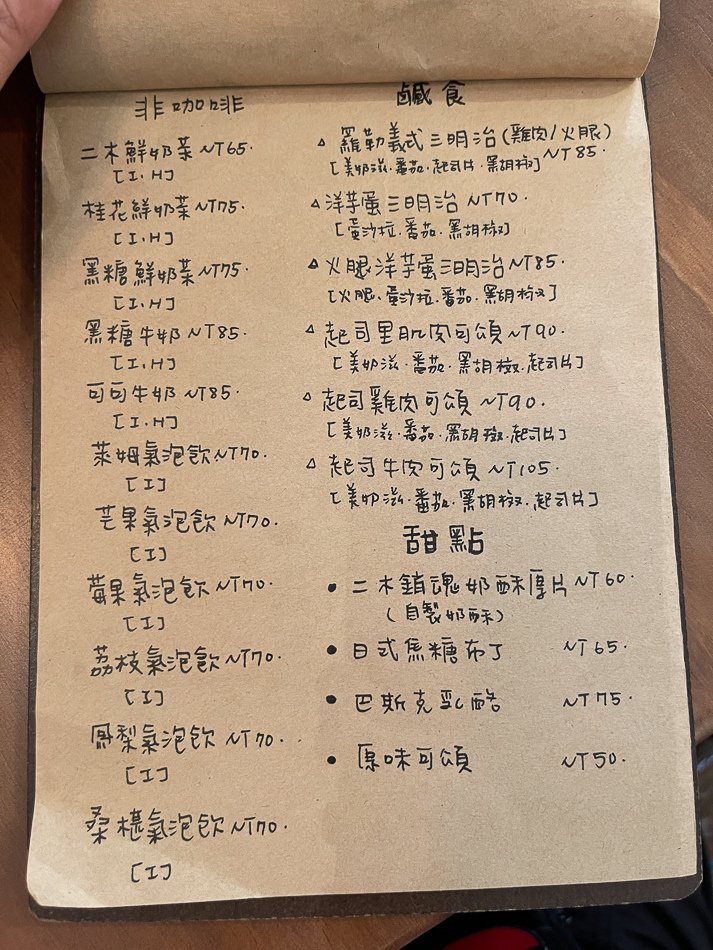 非咖啡
二木鮮奶茶 NT65.
[I.H]
桂花鮮奶茶 NT75.
[I.H]
黑糖鮮奶茶 NT75.
[I.H]
黑糖牛奶 NT85.
[I.H]
可可牛奶 NT85.
[I.H]
萊姆氣泡飲 NT70.
[I]
芒果氣泡飲 NT70.
[I]
莓果氣泡飲 NT70.
[I]
荔枝氣泡飲 NT70.
[I]
鳳梨氣泡飲 NT70.
[I]
桑椹氣泡飲 NT70.
[I]
鹹食
△ 羅勒義式三明治(雞肉/火腿)
[美奶滋.番茄.起司片.黑胡椒] NT85.
△ 洋芋蛋三明治 NT70.
[蛋沙拉.番茄.黑胡椒]
△ 火腿洋芋蛋三明治 NT85.
[火腿.蛋沙拉.番茄.黑胡椒]
△ 起司里肌肉可頌 NT90.
[美奶滋.番茄.黑胡椒.起司片]
△ 起司雞肉可頌 NT90.
[美奶滋.番茄.黑胡椒.起司片]
△ 起司牛肉可頌 NT105.
[美奶滋.番茄.黑胡椒.起司片]
甜點
• 二木銷魂奶酥厚片 NT60.
(自製奶酥)
• 日式焦糖布丁 NT65.
• 巴斯克乳酪 NT75.
• 原味可頌 NT50.